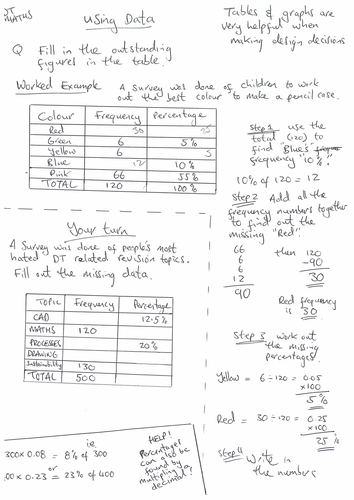 DT
MATHS
Using Data
Tables & graphs are
very helpful when
making design decisions
Q Fill in the outstanding
figures in the table.
Worked Example A survey was done of children to work
out the best colour to make a pencil case.
Colour Frequency Percentage
Red 30 25
Green 6 5%
Yellow 6 5
Blue 12 10%
Pink 66 55%
TOTAL 120 100%
Step 1 use the
total (120) to
find "Blue's"
frequency "10%".
10% of 120 = 12
Step 2 Add all the
frequency numbers together
to find out the
missing "Red".
66
6
6
12
90
then 120
-90
30
Red frequency
is 30
Step 3 work out
the missing
percentages.
Yellow = 6÷120 = 0.05
x100
5%
Red = 30÷120 = 0.25
x100
25%
Step 4 Write in
the numbers
Your turn
A Survey was done of people's most
hated DT related revision topics.
Fill out the missing data.
TOPIC Frequency Percentage
CAD 12.5%
MATHS 120
PROCESSES 20%
DRAWING
Sustainability 130
TOTAL 500
ie
300x0.08 = 8% of 300
or
00x0.23 = 23% of 400
HELP!
Percentages
can also be
found by
multiplying a
decimal!